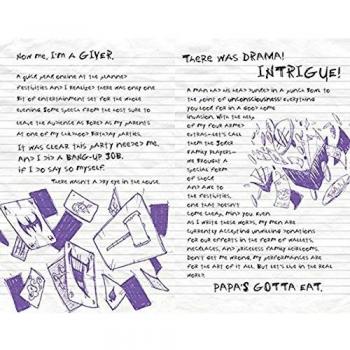 Now me, I'm a GIVER.
A quick year online at the planned
festivities and I realized there was only one
bit of entertainment set for the whole
evening. Some speech from the host sure to
leave the audience as bored as my parents
at one of my childhood birthday parties.
It was clear this party needed me.
And I did a BANG-UP JOB,
if I do say so myself.
There wasn't a dry eye in the house.
There was DRAMA!
INTRIGUE!
A man had his head dunked in a punch bowl to
the point of unconsciousness! Everything
you look for in a good home
invasion. With the help
of my four armed
extras—let's call
them the Joker
Family Players—
we brought a
special form
of shock
and awe to
the festivities,
one that doesn't
come cheap, mind you. Even
as I write these words, my men are
currently accepting unwilling donations
for our efforts in the form of wallets,
necklaces, and priceless family heirlooms.
Don't get me wrong, my performances are
for the art of it all. But let's live in the real
world.
PAPA'S GOTTA EAT.